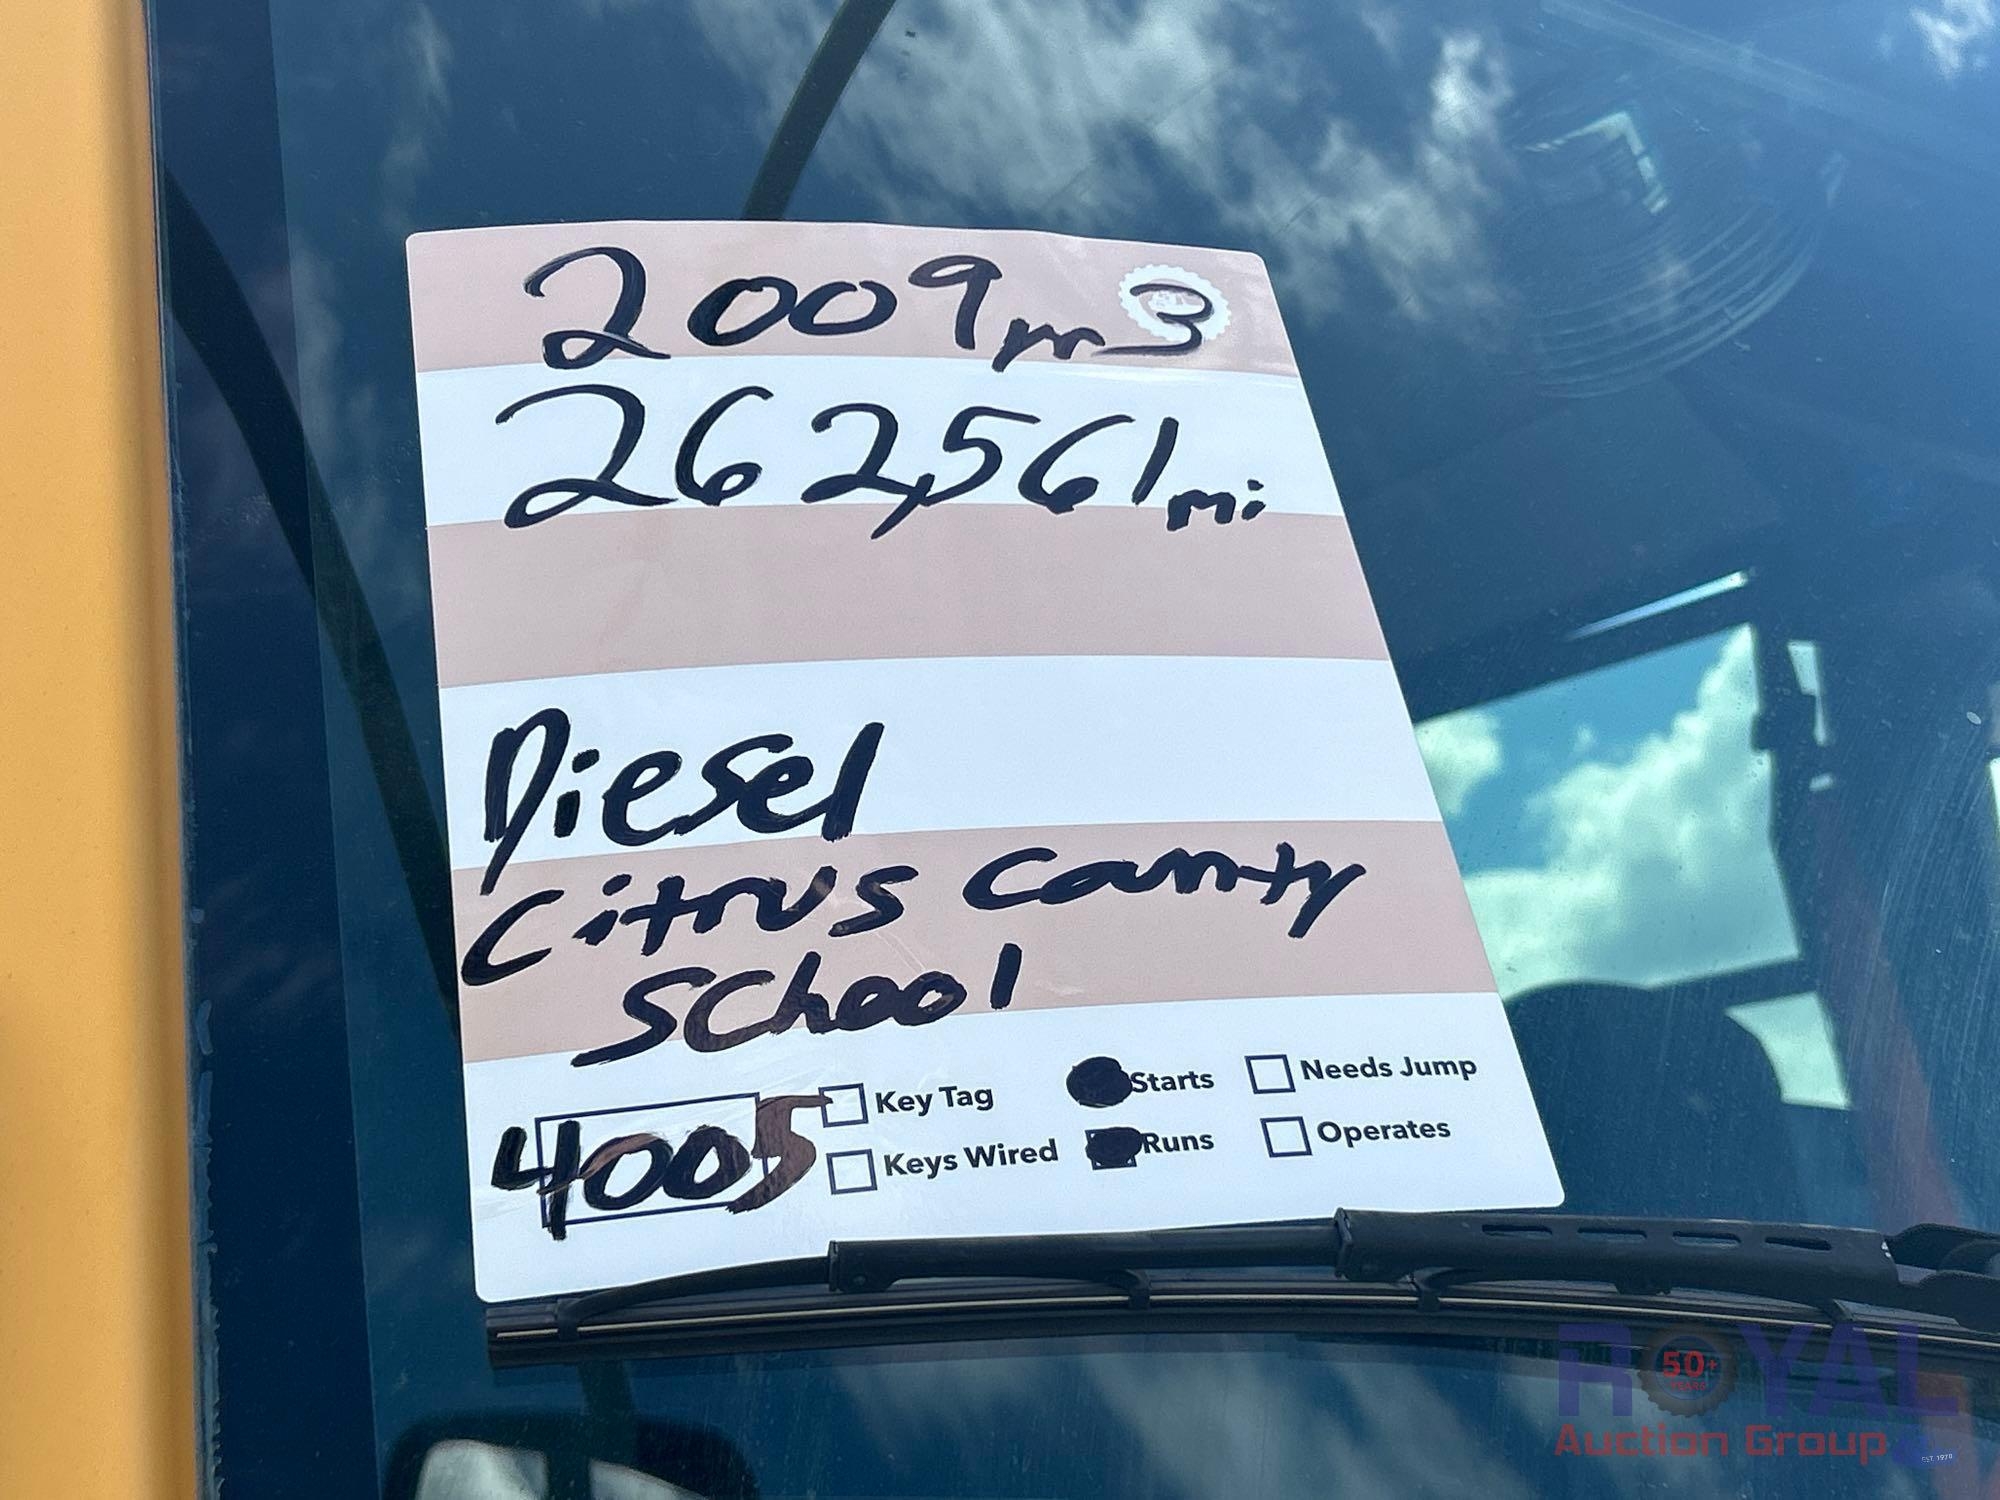 2009 yr 3
262,561 mi
Diesel
Citrus County
School
4005
Key Tag
Starts
Needs Jump
Keys Wired
Runs
Operates
ROYAL
50+
YEARS
Auction Group
EST. 1970